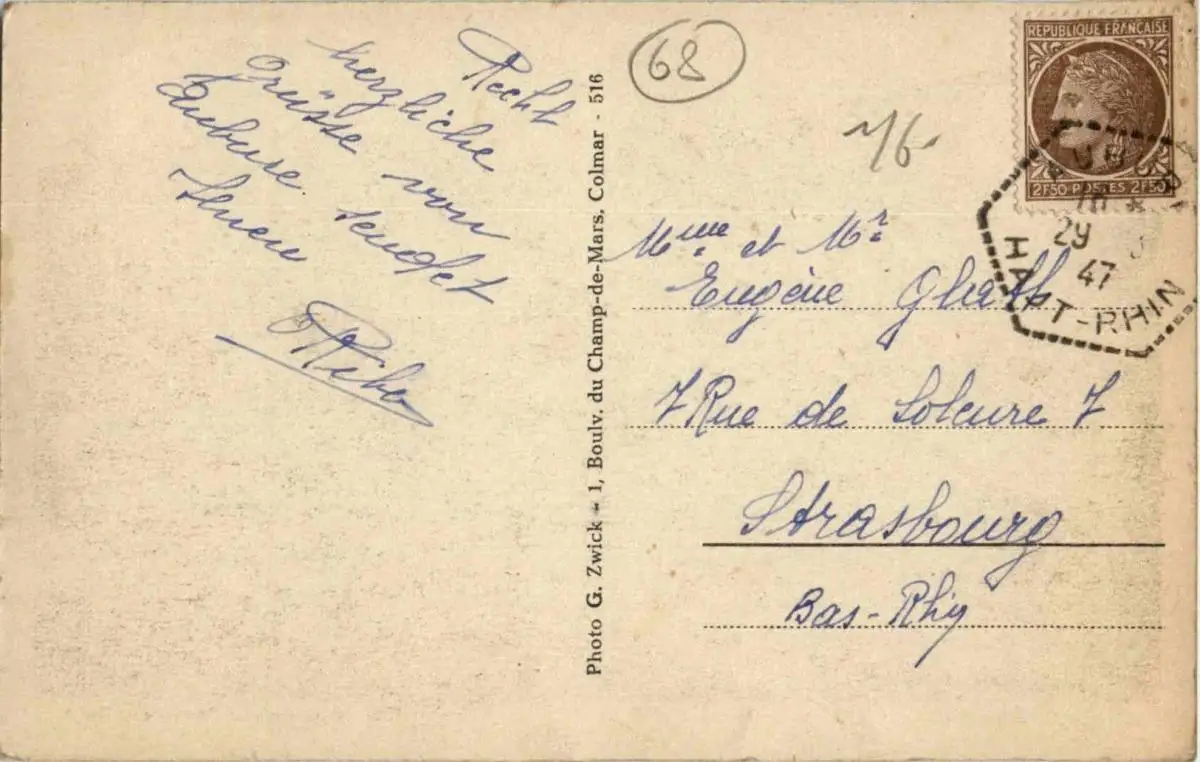 Recht
herzliche
Grüsse von
Aubure sendet
Ihnen
68
Photo G. Zwick - 1, Boulv. du Champ-de-Mars. Colmar - 516
REPUBLIQUE FRANÇAISE
2F50 POSTES 2F50
29
47
HAUT-RHIN
Mme. et Mr.
Eugène
7 Rue de Soleure 7
Strasbourg
Bas-Rhin